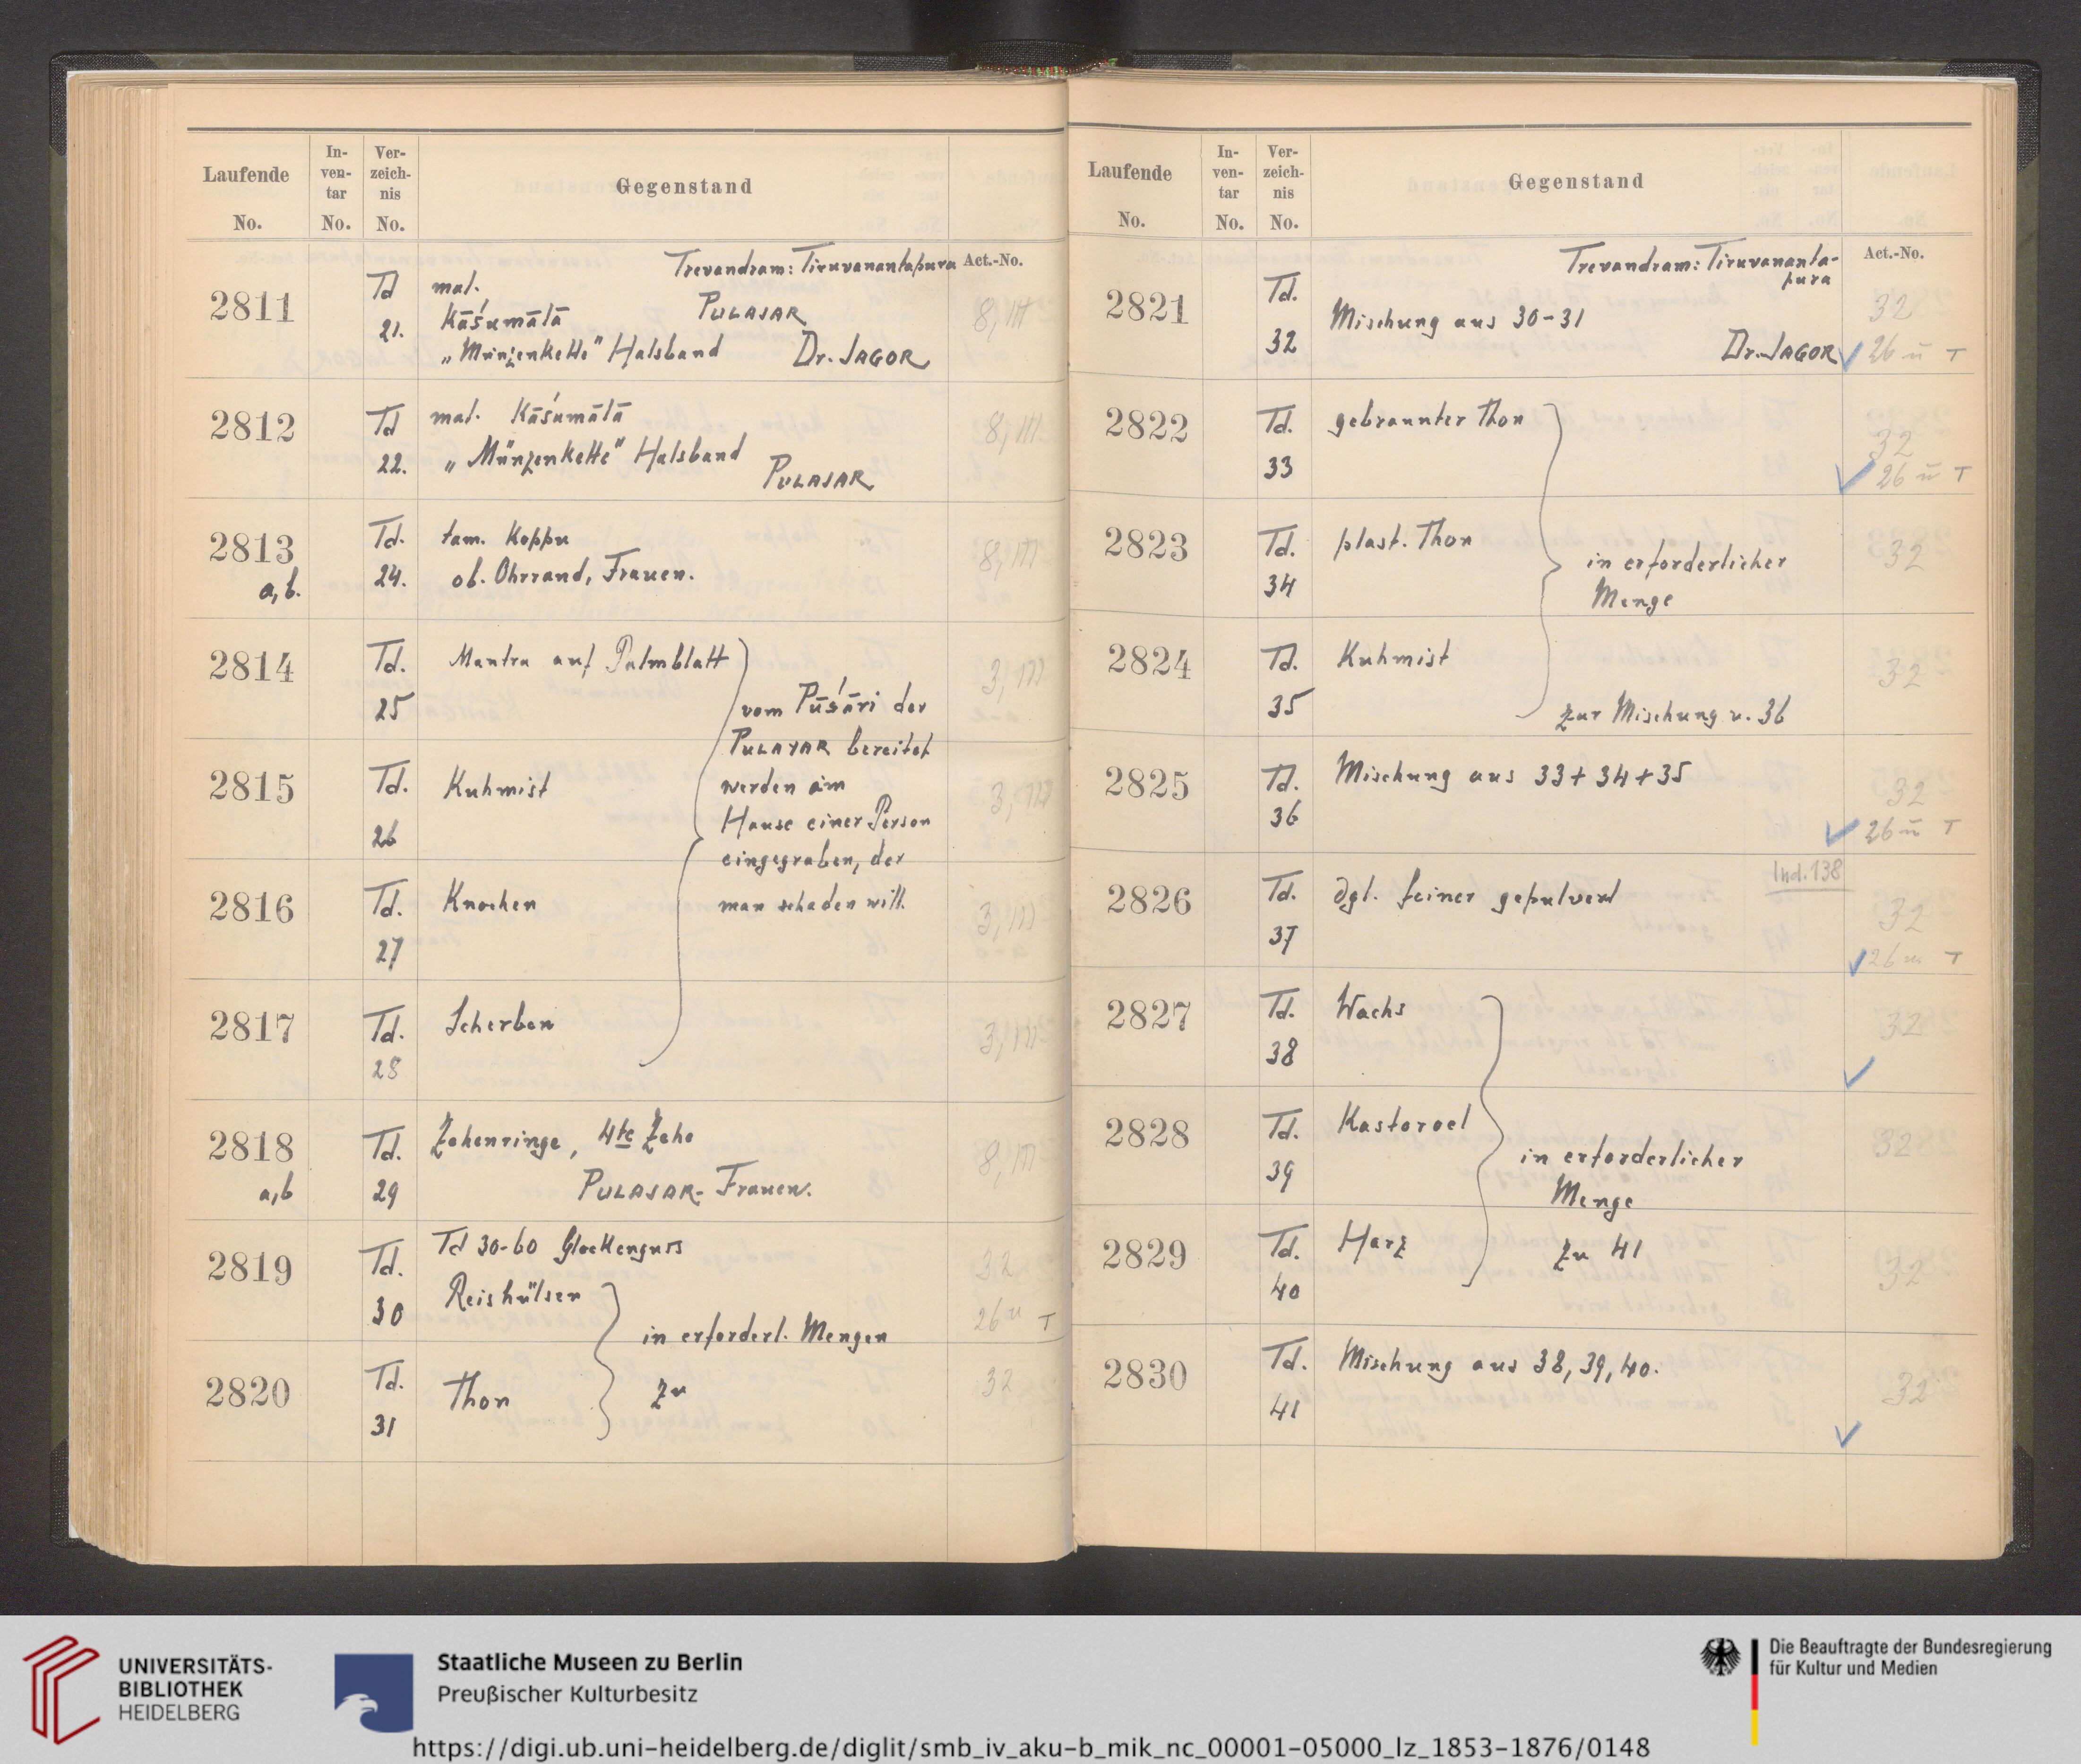 Laufende No.
In-ven-tar No.
Ver-zeich-nis No.
Gegenstand
Act.-No.
Trevandram: Tiruvanantapura
2811 Td 21. mal. Kāśumālā PULAJAR 8, III
„Münzenkette" Halsband Dr. JAGOR
2812 Td 22. mal. Kāśumālā 8, III
„Münzenkette" Halsband
PULAJAR
2813 a,b. Td. 24. tam. Koppu 8, III
ob. Ohrrand, Frauen.
2814 Td. 25 Mantra auf Palmblatt 3, III
vom Pūśāri der
PULAYAR bereitet
2815 Td. 26 Kuhmist 3, III
werden im
Hause einer Person
eingegraben, der
2816 Td. 27 Knochen 3, III
man schaden will.
2817 Td. 28 Scherben 3, III
2818 a,b Td. 29 Zehenringe, 4te Zehe 8, III
PULAJAR-Frauen.
2819 Td. 30 Td 30-60 Glockenguss 32
Reishülsen 26 u T
in erforderl. Mengen
2820 Td. 31 Thon zu 32
Laufende No.
In-ven-tar No.
Ver-zeich-nis No.
Gegenstand
Act.-No.
Trevandram: Tiruvananta-
pura
2821 Td. 32 Mischung aus 30-31 32
Dr. JAGOR 26 u T
2822 Td. 33 gebrannter Thon 32
26 u T
2823 Td. 34 plast. Thon 32
in erforderlicher
Menge
2824 Td. 35 Kuhmist 32
zur Mischung v. 36
2825 Td. 36 Mischung aus 33+34+35 32
26 u T
Ind. 138
2826 Td. 37 dgl. feiner gepulvert 32
26 u T
2827 Td. 38 Wachs 32
2828 Td. 39 Kastoroel 32
in erforderlicher
Menge
2829 Td. 40 Harz zu 41 32
2830 Td. 41 Mischung aus 38, 39, 40. 32
UNIVERSITÄTS-
BIBLIOTHEK
HEIDELBERG
Staatliche Museen zu Berlin
Preußischer Kulturbesitz
Die Beauftragte der Bundesregierung
für Kultur und Medien
https://digi.ub.uni-heidelberg.de/diglit/smb_iv_aku-b_mik_nc_00001-05000_lz_1853-1876/0148